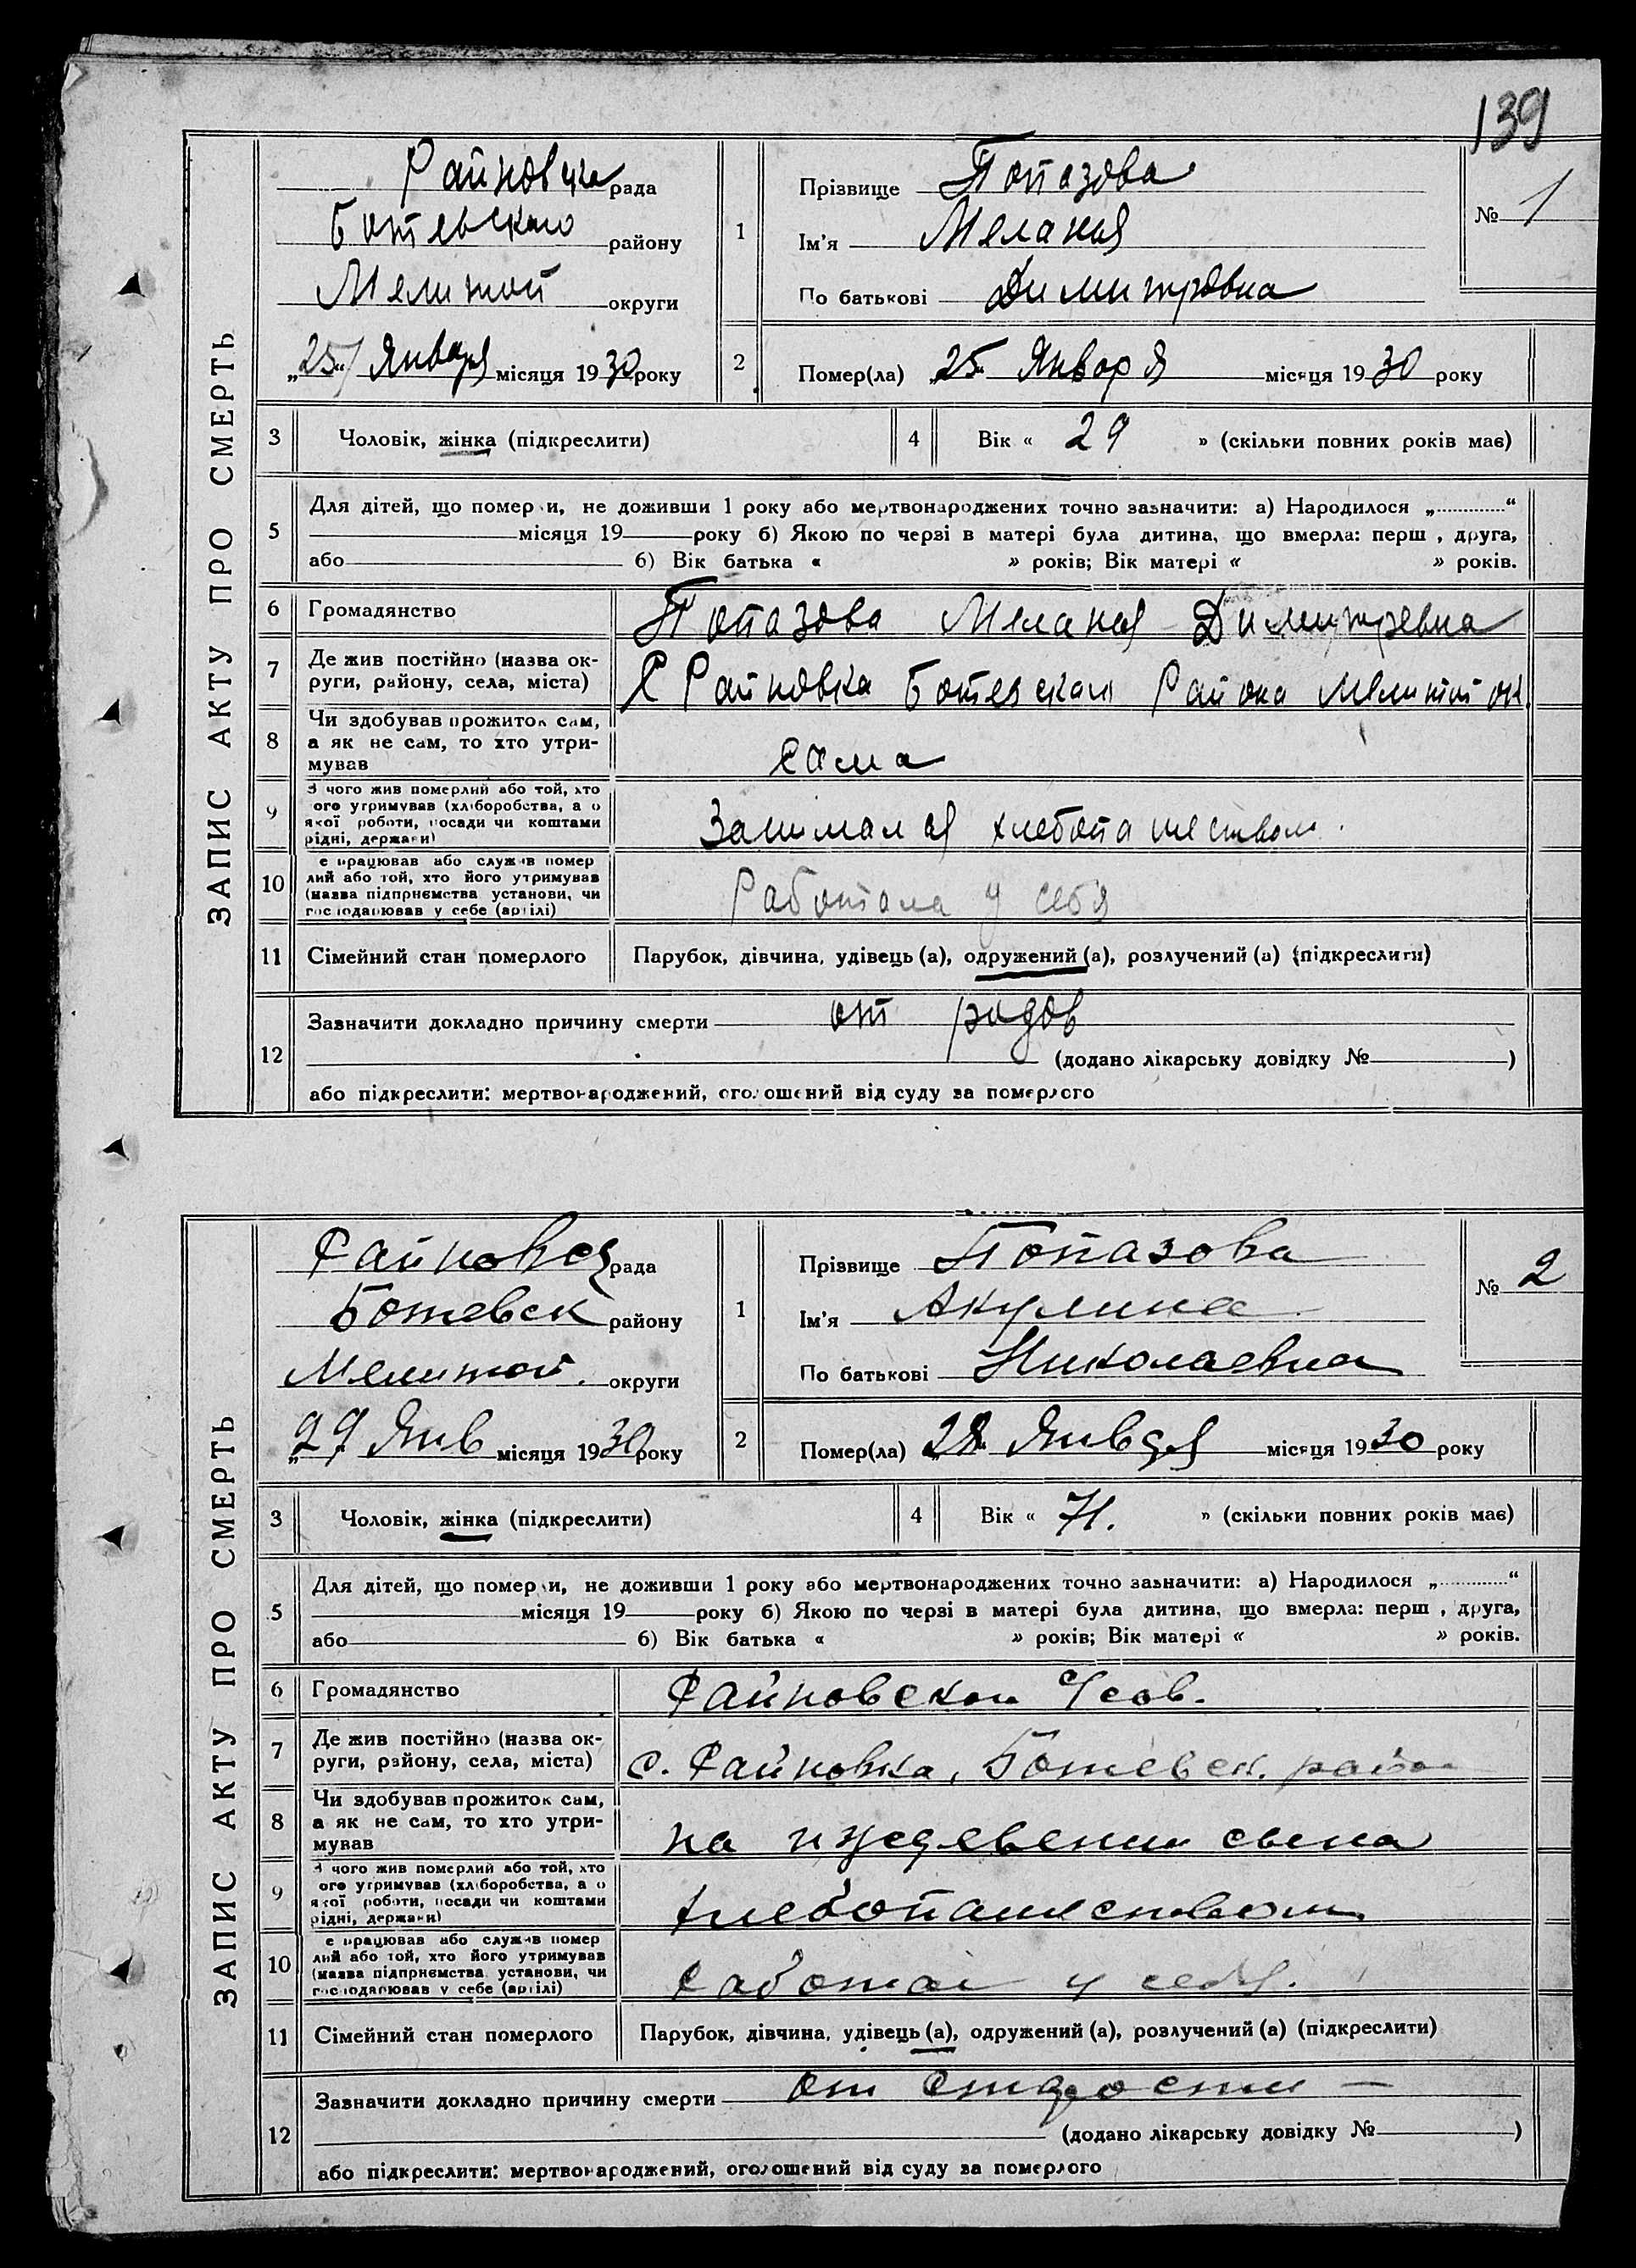 139
ЗАПИС АКТУ ПРО СМЕРТЬ
Райновська рада
Ботевского району
Мелитой округи
„25“ Января місяця 1930 року
1
Прізвище Топазова
Ім'я Мелания
По батькові Димитровна
№ 1
2
Помер(ла) „25“ Января місяця 1930 року
3 Чоловік, жінка (підкреслити)
4 Вік « 29 » (скільки повних років має)
5
Для дітей, що помер и, не доживши 1 року або мертвонароджених точно зазначити: а) Народилося „............“
місяця 19 року б) Якою по черзі в матері була дитина, що вмерла: перш , друга,
або б) Вік батька « » років; Вік матері « » років.
6 Громадянство Топазова Мелания Димитревна
7 Де жив постійно (назва ок-
руги, району, села, міста) С Райновка Ботевскаго Района Мелитоп ок
8 Чи здобував прожиток сам,
а як не сам, то хто утри-
мував сама
9 З чого жив померлий або той, хто
ого утримував (хліборобства, а о
якої роботи, посади чи коштами
рідні, держави) Занимался хлебопашеством.
10 е працював або служив помер
лий або той, хто його утримував
(назва підприємства установи, чи
господарював у себе (артілі) Работала у себя
11 Сімейний стан померлого Парубок, дівчина, удівець (а), одружений (а), розлучений (а) (підкреслити)
12
Зазначити докладно причину смерти от родов
(додано лікарську довідку № )
або підкреслити: мертвонароджений, оголошений від суду за померлого
ЗАПИС АКТУ ПРО СМЕРТЬ
Райновск рада
Ботевск району
Мелитой. округи
„29“ Янв місяця 1930 року
1
Прізвище Топазова
Ім'я Акулина
По батькові Николаевна
№ 2
2
Помер(ла) „28“ Января місяця 1930 року
3 Чоловік, жінка (підкреслити)
4 Вік « 71. » (скільки повних років має)
5
Для дітей, що помер и, не доживши 1 року або мертвонароджених точно зазначити: а) Народилося „............“
місяця 19 року б) Якою по черзі в матері була дитина, що вмерла: перш , друга,
або б) Вік батька « » років; Вік матері « » років.
6 Громадянство Райновской с/сов.
7 Де жив постійно (назва ок-
руги, району, села, міста) с. Райновка, Ботевск. район
8 Чи здобував прожиток сам,
а як не сам, то хто утри-
мував на иждевении сына
9 З чого жив померлий або той, хто
ого утримував (хліборобства, а о
якої роботи, посади чи коштами
рідні, держави) хлебопашеством
10 е працював або служив помер
лий або той, хто його утримував
(назва підприємства установи, чи
господарював у себе (артілі) Работал у себя.
11 Сімейний стан померлого Парубок, дівчина, удівець (а), одружений (а), розлучений (а) (підкреслити)
12
Зазначити докладно причину смерти от старости —
(додано лікарську довідку № )
або підкреслити: мертвонароджений, оголошений від суду за померлого